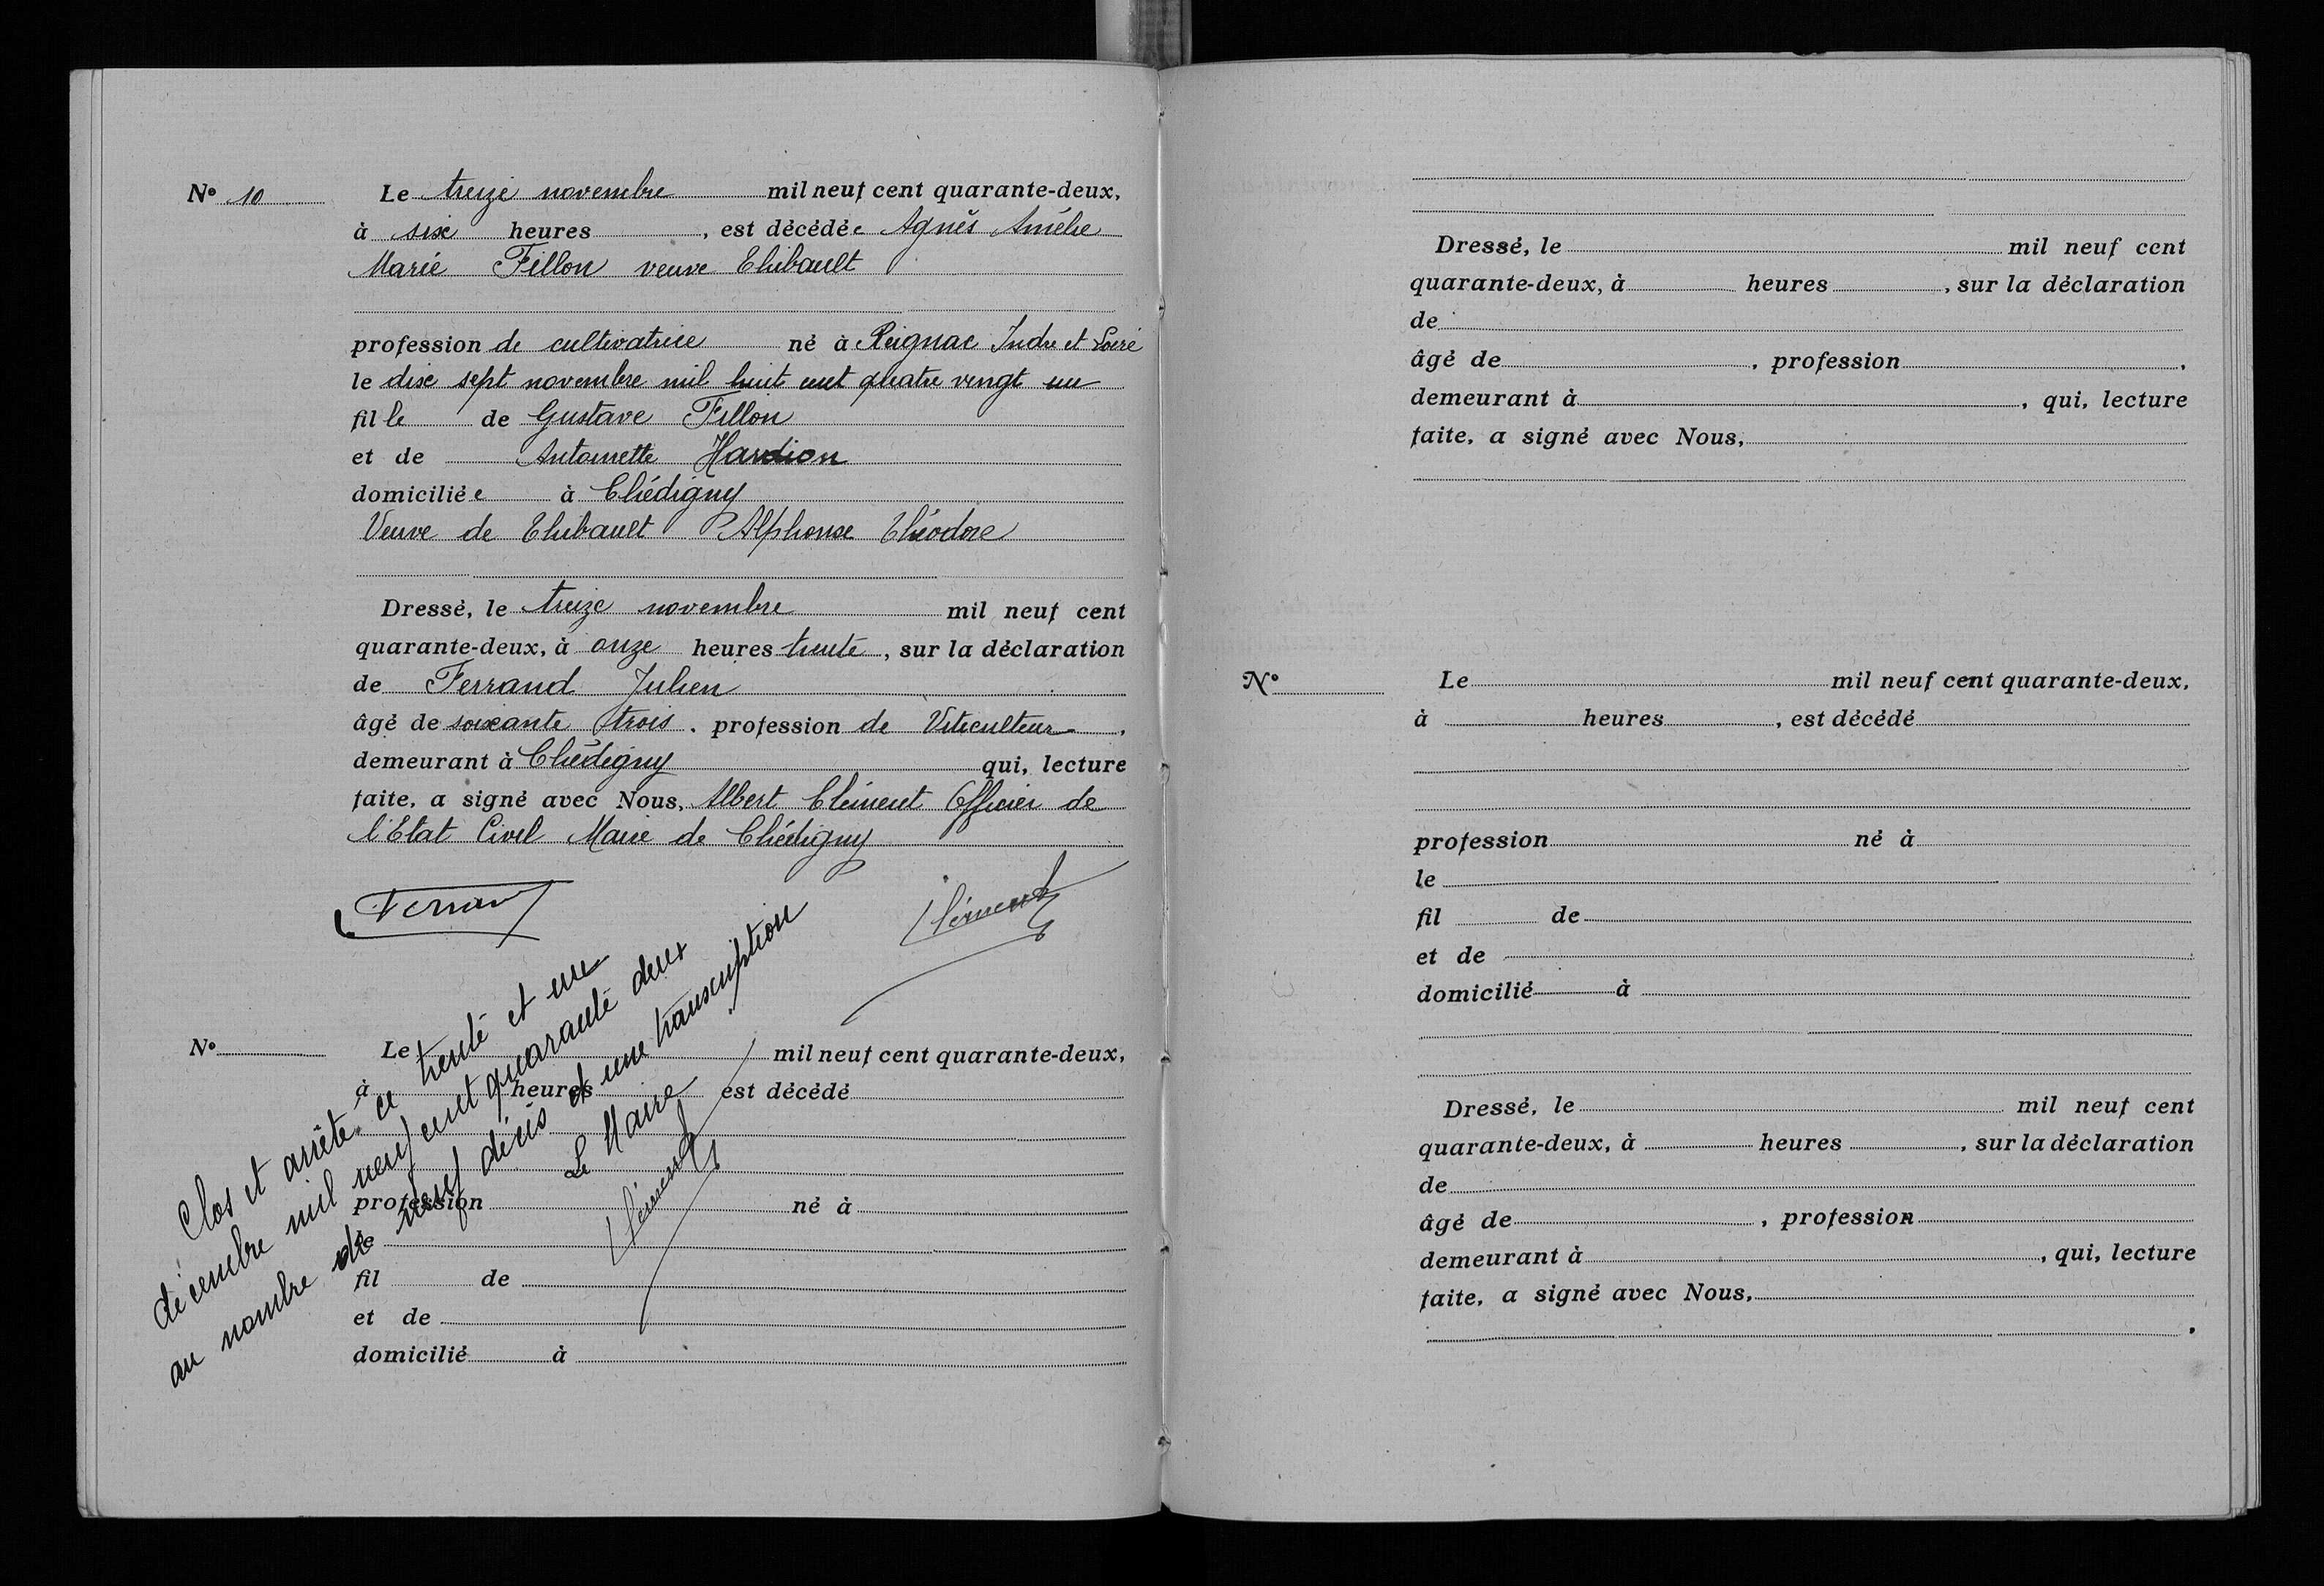 N° 10
Le treize novembre mil neuf cent quarante-deux,
à six heures , est décédée Agnès Amélie
Marie Fillon veuve Thibault
profession de cultivatrice né à Reignac Indre et Loire
le dix sept novembre mil huit cent quatre vingt un
fille de Gustave Fillon
et de Antoinette Hardion
domiciliée à Chédigny
Veuve de Thibault Alphonse Théodore
Dressé, le treize novembre mil neuf cent
quarante-deux, à onze heures trente, sur la déclaration
de Ferrand Julien
âgé de soixante trois, profession de Viticulteur,
demeurant à Chédigny qui, lecture
faite, a signé avec Nous, Albert Clément Officier de
l'Etat Civil Maire de Chédigny
Ferrand
Clément
Clos et arrêté ce trente et un
décembre mil neuf cent quarante deux
au nombre de neuf décès et une transcription
Le Maire
Clément
N°
Le mil neuf cent quarante-deux,
à heures est décédé
profession né à
le
fil de
et de
domicilié à
Dressé, le mil neuf cent
quarante-deux, à heures , sur la déclaration
de
âgé de , profession .
demeurant à , qui, lecture
faite, a signé avec Nous,
N°
Le mil neuf cent quarante-deux,
à heures , est décédé
profession né à
le
fil de
et de
domicilié à
Dressé, le mil neuf cent
quarante-deux, à heures , sur la déclaration
de
âgé de , profession
demeurant à , qui, lecture
faite, a signé avec Nous,
.